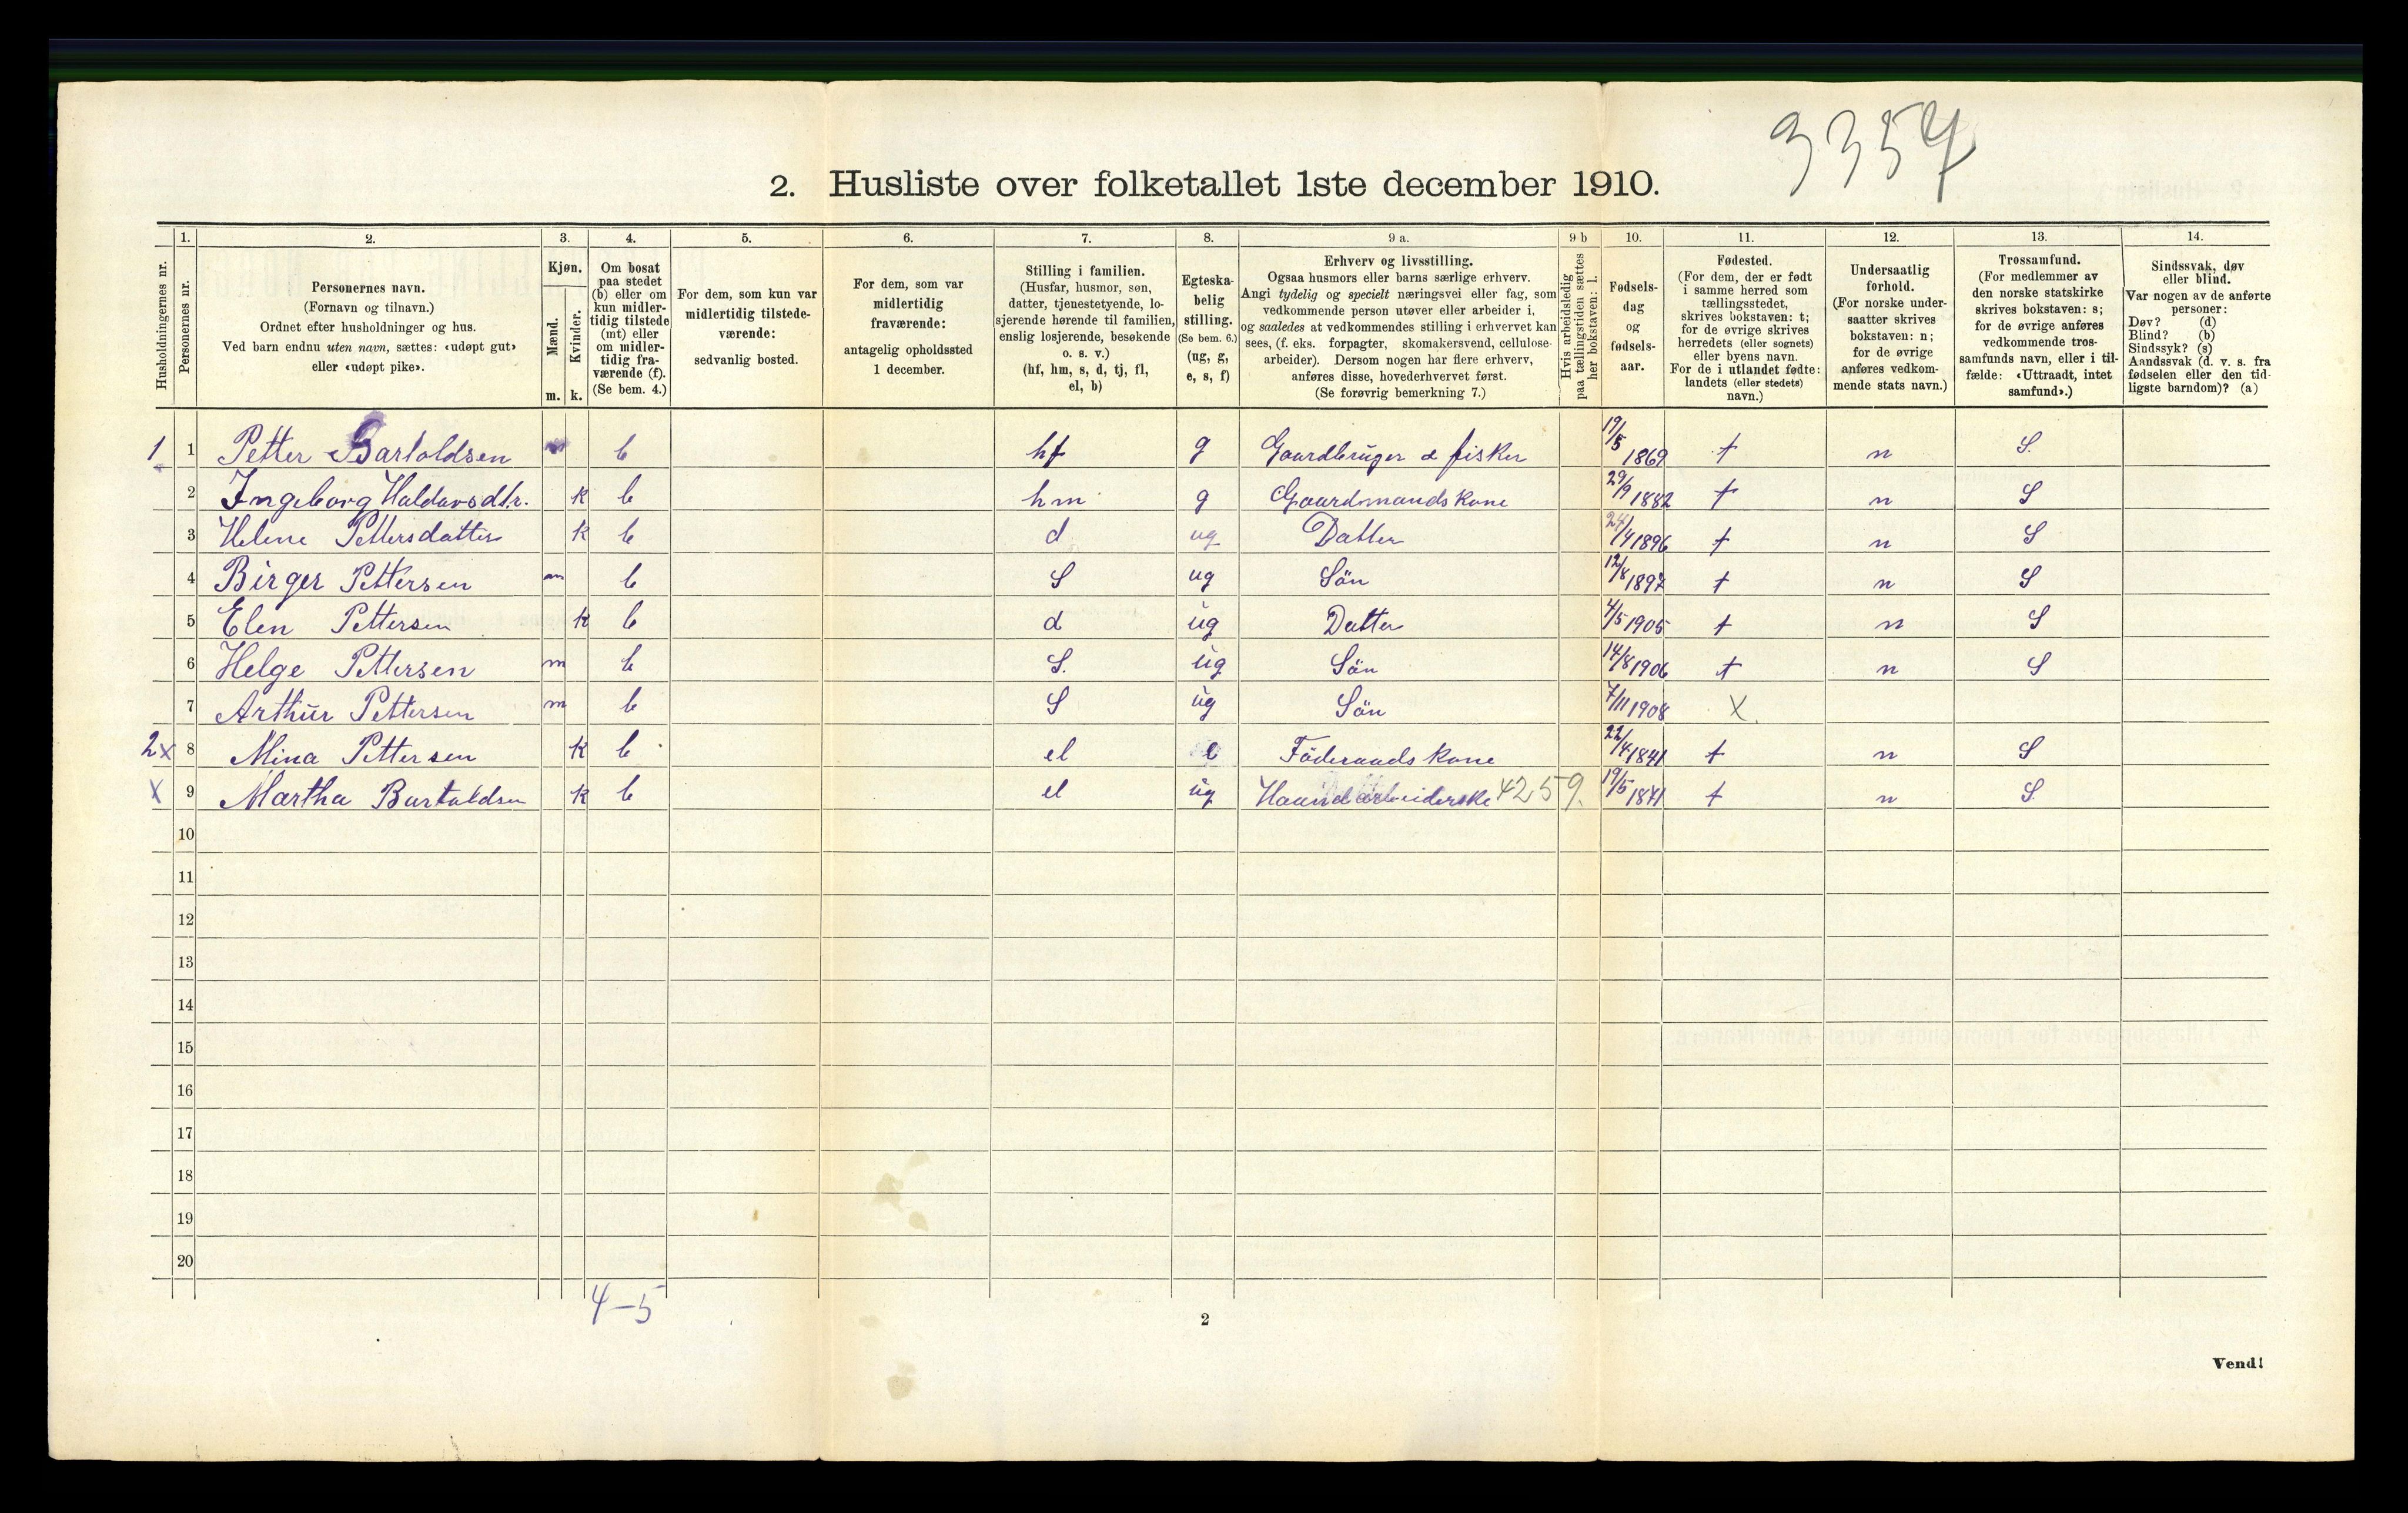 3357
2. Husliste over folketallet 1ste december 1910.
Husholdningernes nr.
1.
Personernes nr.
2.
Personernes navn.
(Fornavn og tilnavn.)
Ordnet efter husholdninger og hus.
Ved barn endnu uten navn, sættes: «udøpt gut»
eller «udøpt pike».
3.
Kjøn.
Mænd.
Kvinder.
m. k.
4.
Om bosat
paa stedet
(b) eller om
kun midler-
tidig tilstede
(mt) eller
om midler-
tidig fra-
værende (f).
(Se bem. 4.)
5.
For dem, som kun var
midlertidig tilstede-
værende:
sedvanlig bosted.
6.
For dem, som var
midlertidig
fraværende:
antagelig opholdssted
1 december.
7.
Stilling i familien.
(Husfar, husmor, søn,
datter, tjenestetyende, lo-
sjerende hørende til familien,
enslig losjerende, besøkende
o. s. v.)
(hf, hm, s, d, tj, fl,
el, b)
8.
Egteska-
belig
stilling.
(Se bem. 6.)
(ug, g,
e, s, f)
9 a.
Erhverv og livsstilling.
Ogsaa husmors eller barns særlige erhverv.
Angi tydelig og specielt næringsvei eller fag, som
vedkommende person utøver eller arbeider i,
og saaledes at vedkommendes stilling i erhvervet kan
sees, (f. eks. forpagter, skomakersvend, cellulose-
arbeider). Dersom nogen har flere erhverv,
anføres disse, hovederhvervet først.
(Se forøvrig bemerkning 7.)
9 b
Hvis arbeidsledig
paa tællingstiden sættes
her bokstaven: l.
10.
Fødsels-
dag
og
fødsels-
aar.
11.
Fødested.
(For dem, der er født
i samme herred som
tællingsstedet,
skrives bokstaven: t;
for de øvrige skrives
herredets (eller sognets)
eller byens navn.
For de i utlandet fødte:
landets (eller stedets)
navn.)
12.
Undersaatlig
forhold.
(For norske under-
saatter skrives
bokstaven: n;
for de øvrige
anføres vedkom-
mende stats navn.)
13.
Trossamfund.
(For medlemmer av
den norske statskirke
skrives bokstaven: s;
for de øvrige anføres
vedkommende tros-
samfunds navn, eller i til-
fælde: «Uttraadt, intet
samfund».)
14.
Sindssvak, døv
eller blind.
Var nogen av de anførte
personer:
Døv? (d)
Blind? (b)
Sindssyk? (s)
Aandssvak (d. v. s. fra
fødselen eller den tid-
ligste barndom)? (a)
1 1 Petter Bartoldsen m b hf g Gaardbruger & fisker 19/5 1869 t n S.
2 Ingeborg Haldorsdtr. k b hm g Gaardmandskone 29/9 1882 t n S
3 Helene Pettersdatter k b d ug Datter 24/4 1896 t n S
4 Birger Pettersen m b S ug Sön 12/8 1897 t n S
5 Elen Pettersen k b d ug Datter 4/5 1905 t n S
6 Helge Pettersen m b S. ug Sön 14/8 1906 t n S
7 Arthur Pettersen m b S ug Sön 7/11 1908 X.
2 x 8 Mina Pettersen k b el e Föderaadskone 22/4 1841 t n S
X 9 Martha Bartoldsen k b el ug Haandarbeiderske 4259. 19/5 1871 t n S.
10
11
12
13
14
15
16
17
18
19
20
4-5
2
Vend!